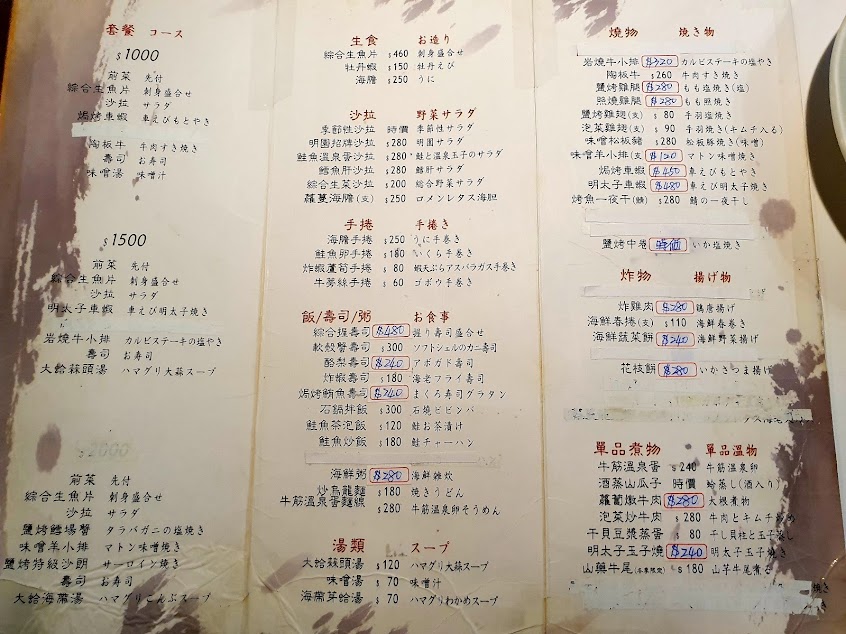 套餐 コース
$1000
前菜 先付
綜合生魚片 刺身盛合せ
沙拉 サラダ
焗烤車蝦 車えびもとやき
陶板牛 牛肉すき焼き
壽司 お寿司
味噌湯 味噌汁
$1500
前菜 先付
綜合生魚片 刺身盛合せ
沙拉 サラダ
明太子車蝦 車えび明太子焼き
岩燒牛小排 カルビステーキの塩やき
壽司 お寿司
大蛤蒜頭湯 ハマグリ大蒜スープ
$2000
前菜 先付
綜合生魚片 刺身盛合せ
沙拉 サラダ
鹽烤鱈場蟹 タラバガニの塩焼き
味噌羊小排 マトン味噌焼き
鹽烤特級沙朗 サーロイン焼き
壽司 お寿司
大蛤海帶湯 ハマグリこんぶスープ
生食 お造り
綜合生魚片 $460 刺身盛合せ
牡丹蝦 $150 牡丹えび
海膽 $250 うに
沙拉 野菜サラダ
季節性沙拉 時價 季節性サラダ
明園招牌沙拉 $280 明園サラダ
鮭魚溫泉蛋沙拉 $280 鮭と温泉玉子のサラダ
鱈魚肝沙拉 $280 鱈肝サラダ
綜合生菜沙拉 $200 総合野菜サラダ
蘿蔓海膽(支) $250 ロメンレタス海胆
手捲 手捲き
海膽手捲 $250 うに手巻き
鮭魚卵手捲 $180 いくら手巻き
炸蝦蘆筍手捲 $80 蝦天ぷらアスパラガス手巻き
牛蒡絲手捲 $60 ゴボウ手巻き
飯/壽司/粥 お食事
綜合握壽司 $480 握り寿司盛合せ
軟殼蟹壽司 $300 ソフトシェルのカニ寿司
酪梨壽司 $240 アボガド寿司
炸蝦壽司 $180 海老フライ寿司
焗烤鮪魚壽司 $240 まぐろ寿司グラタン
石鍋拌飯 $300 石焼ビビンバ
鮭魚茶泡飯 $120 鮭お茶漬け
鮭魚炒飯 $180 鮭チャーハン
海鮮粥 $280 海鮮雑炊
炒烏龍麵 $180 焼きうどん
牛筋溫泉蛋麵線 $280 牛筋温泉卵そうめん
湯類 スープ
大蛤蒜頭湯 $120 ハマグリ大蒜スープ
味噌湯 $70 味噌汁
海帶芽蛤湯 $70 ハマグリわかめスープ
燒物 焼き物
岩燒牛小排 $320 カルビステーキの塩やき
陶板牛 $260 牛肉すき焼き
鹽烤雞腿 $280 もも塩焼き(塩)
照燒雞腿 $280 もも照焼き
鹽烤雞翅(支) $80 手羽塩焼き
泡菜雞翅(支) $90 手羽焼き(キムチ入る)
味噌松板豬 $280 松板豚焼き(味噌)
味噌羊小排(支) $120 マトン味噌焼き
焗烤車蝦 $450 車えびもとやき
明太子車蝦 $480 車えび明太子焼き
烤魚一夜干(鯖) $280 鯖の一夜干し
鹽烤中捲 時価 いか塩焼き
炸物 揚げ物
炸雞肉 $280 鶏唐揚げ
海鮮春捲(支) $110 海鮮春巻き
海鮮蔬菜餅 $240 海鮮野菜揚げ
花枝餅 $280 いかさつま揚げ
單品煮物 單品溫物
牛筋溫泉蛋 $240 牛筋温泉卵
酒蒸山瓜子 時價 蛤蒸し(酒入り)
蘿蔔燉牛肉 $280 大根煮物
泡菜炒牛肉 $280 牛肉とキムチ炒め
干貝豆漿蒸蛋 $80 干し貝柱と玉子蒸し
明太子玉子燒 $240 明太子玉子焼き
山藥牛尾(冬季限定) $180 山芋牛尾煮る
焼き